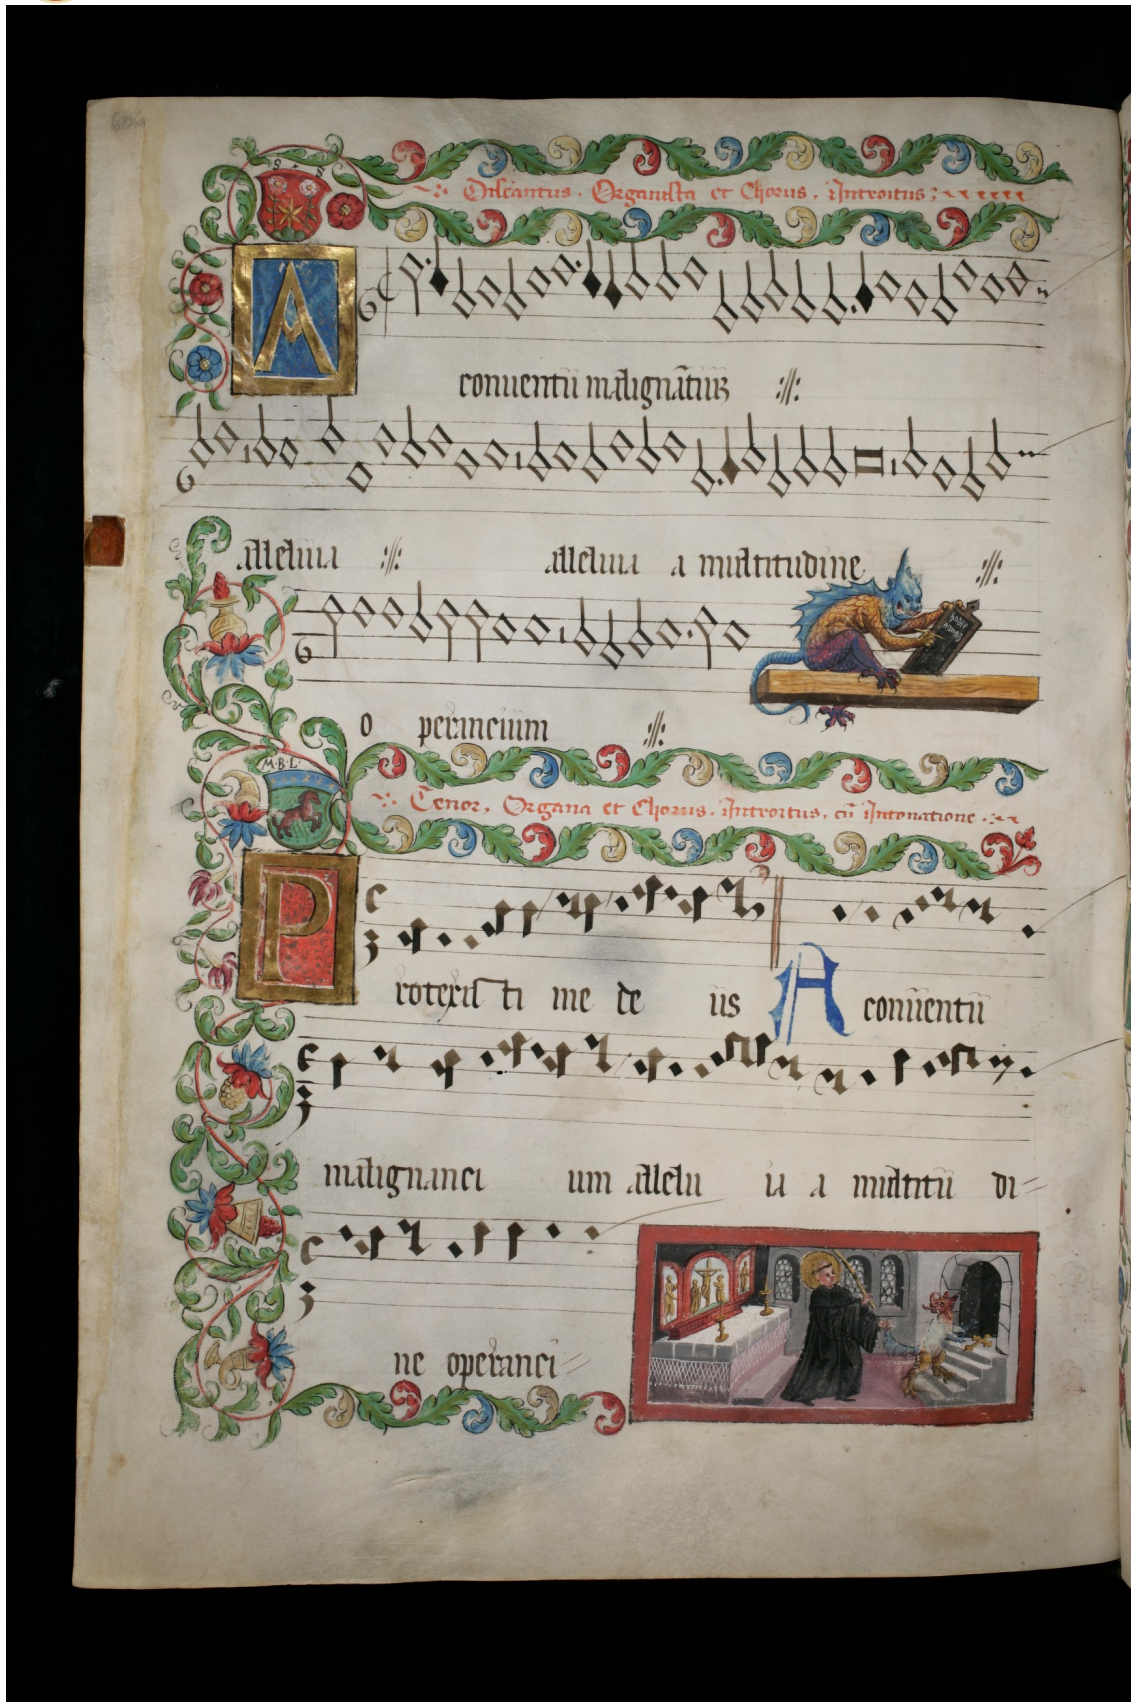 604
S S
Discantus. Organista et Chorus. Introitus:
A
conuentu malignātiū
alleluia alleluia a multitudine
o perancium
M.B.L.
Tenor, Organa et Chorus. Introitus, cū Intonatione.
P rotexis ti me de us A conuentu
malignanci um allelu ia a multitu di=
ne operanci=